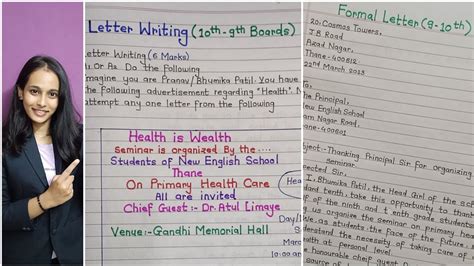 Letter Writing (10th-9th Boards)
Letter Writing (6 Marks)
Or As. Do the following
Imagine you are Pranav/Bhumika Patil. You have
the following advertisement regarding "Health".
attempt any one letter from the following
Health is Wealth
Seminar is organized By the ....
Students of New English School
Thane
On Primary Health Care
All are invited
Chief Guest :- Dr. Atul Limaye
Venue:- Gandhi Memorial Hall
10:00
Formal Letter (9-10th)
20, Cosmos Towers,
J.B. Road
Azad Nagar,
Thane-400612
22nd March, 2023
The Principal,
New English School
Ram Nagar Road
Thane-400601
Subject:- Thanking Principal Sir for organizing
seminar
Respected Sir,
I, Bhumika Patil, Head Girl of the
tenth, take this opportunity to thank
of the ninth and tenth grade students
us organize the Seminar on primary
understand the necessity of taking care of
health at personal level.
honourable chief guest
source of